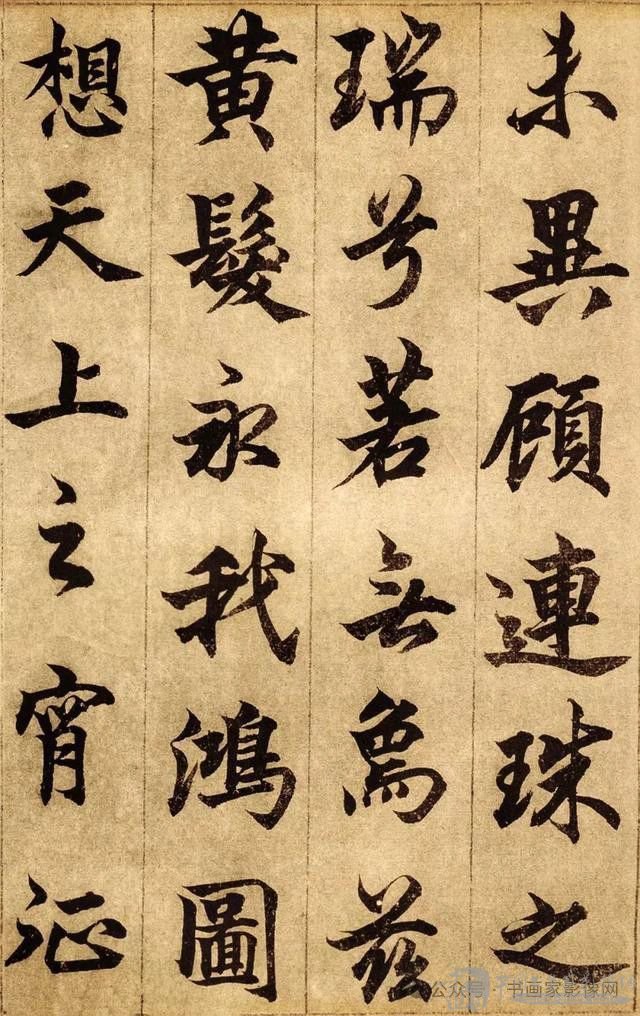 未異顧連珠之
瑞兮若無為茲
黄髮永我鴻圖
想天上之宵征
公众号 · 书画家影像网